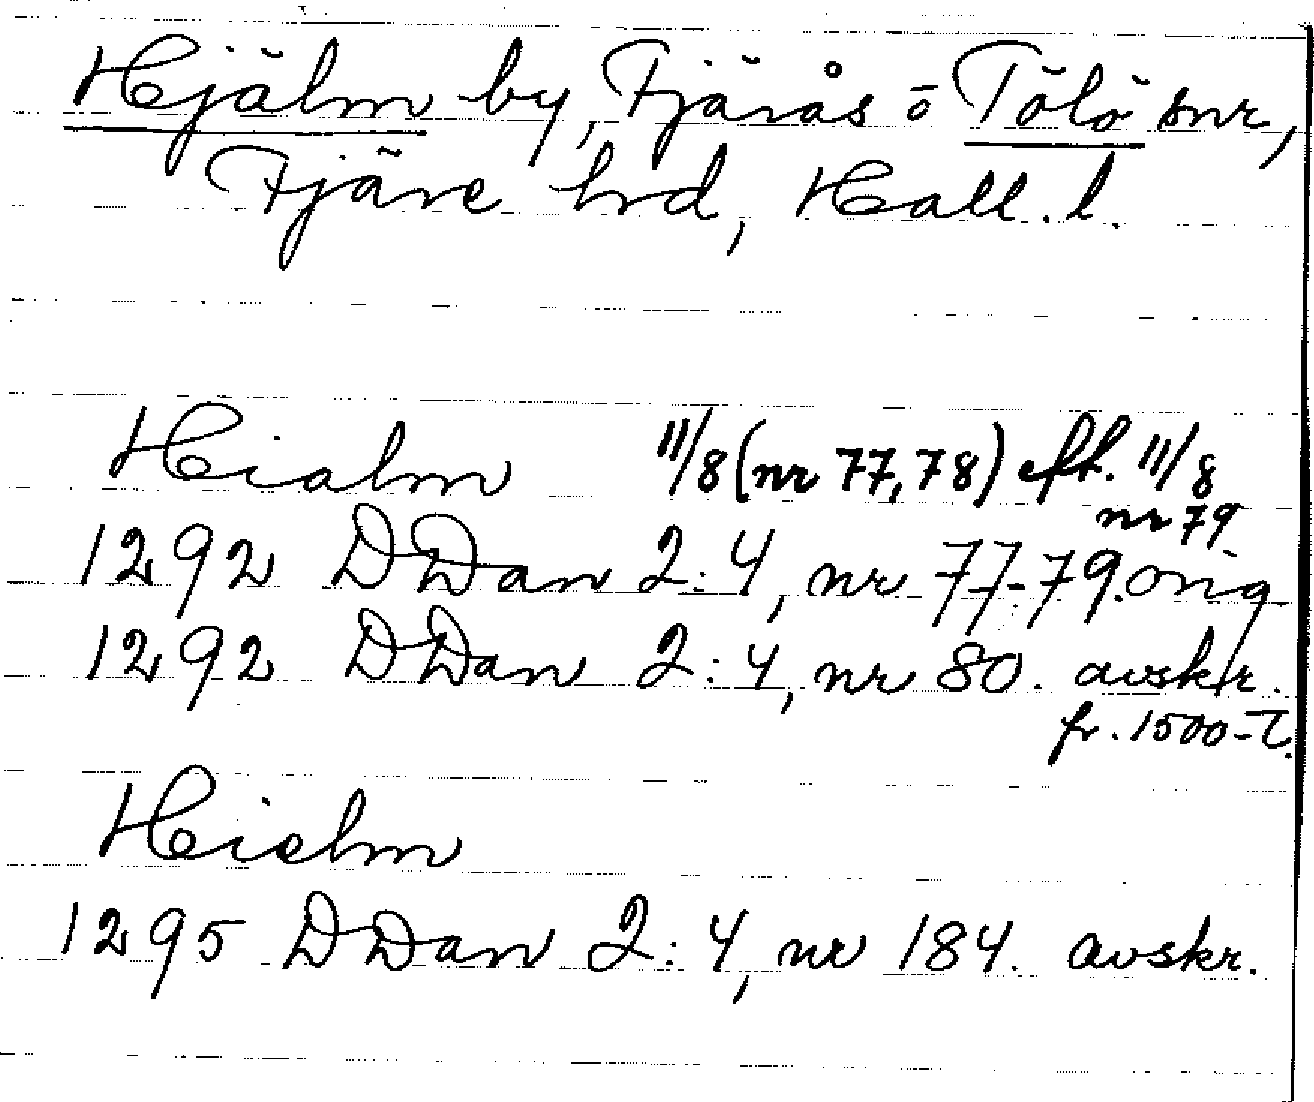 Hjälm by, Fjärås o Tölö snr,
Fjäre hrd, Hall. l.
Hialm 11/8 (nr 77, 78) eft. 11/8
nr 79
1292 DDan 2:4, nr 77-79. orig
1292 DDan 2:4, nr 80. avskr.
fr. 1500-T.
Hielm
1295 DDan 2:4, nr 184. avskr.